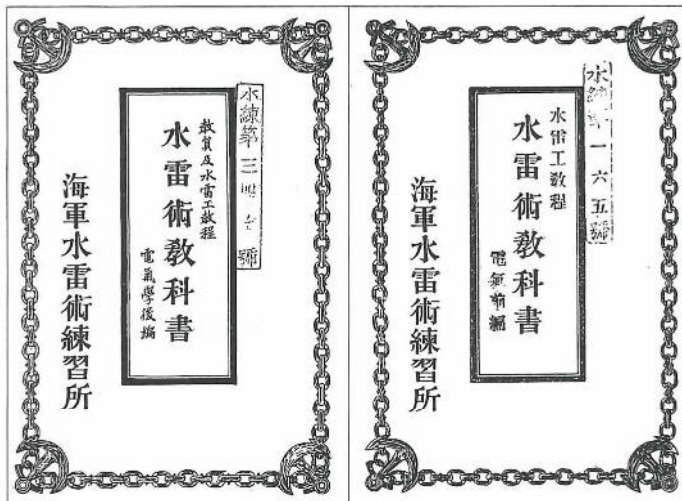 水練第一六五號
水雷工教程
水雷術教科書
電氣學前編
海軍水雷術練習所
水練第三
號
教員及水雷工教程
水雷術教科書
電氣學後編
海軍水雷術練習所